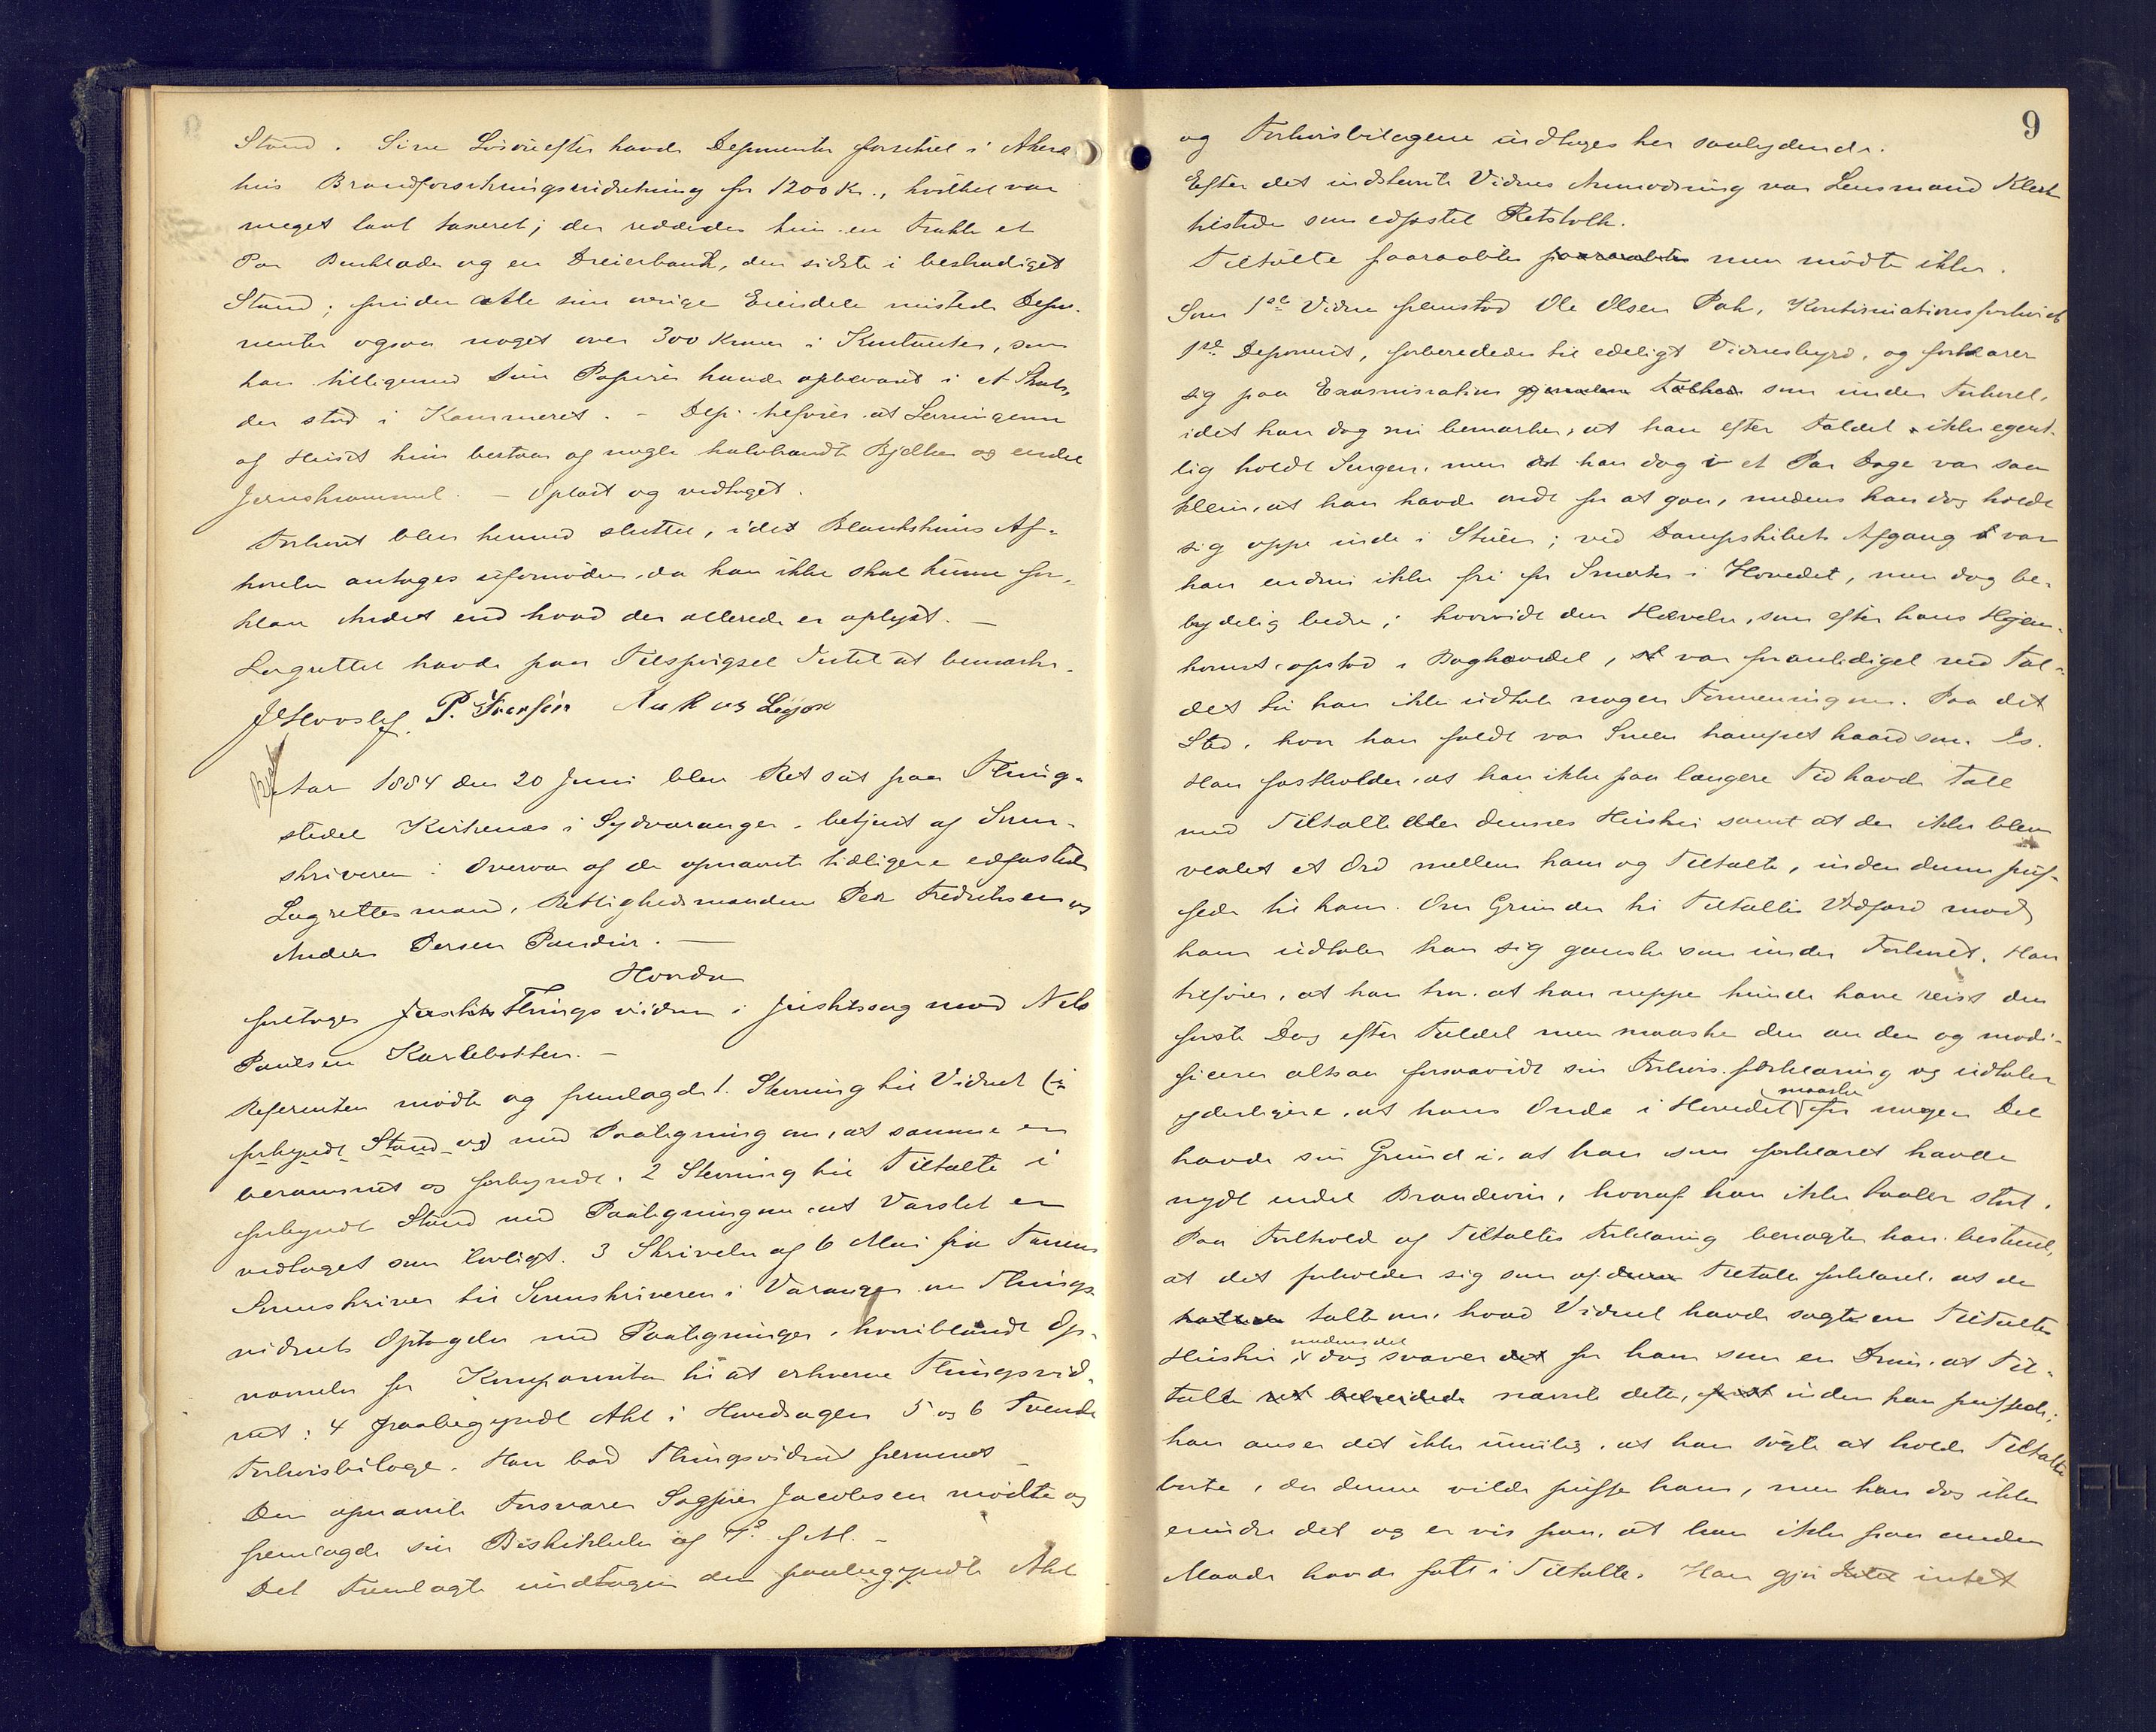 Stand. Sine Løsøreefter havde Deponenten forsikret i Akers
hus Brandforsikringsindretning for 1200 Kr., hvilket var
meget lavt taxeret; der reddedes kun en Frakke et
Par Benklæder og en Dreierbænk, den sidste i beskadiget
Stand; foruden alle sine øvrige Eiendele mistede Depo-
nenten ogsaa noget over 300 Kroner i Kontanter, som
han tilligemed sine Papirer havde opbevaret i et Skab,
der stod i Kammeret. – Dep. tilføier at Levningerne
af Huset kun bestaar af nogle halvbrændte Bjelker og endel
Jernskrammel. – Oplæst og vedtaget.
Forhøret blev hermed sluttet, idet Af-
hørelse antages ufornøden, da han ikke skal kunne for-
klare Andet end hvad der allerede er oplyst. –
Lagrettet havde paa Tilspørgsel Intet at bemærke.
P. Iversen
Aar 1884 den 20 Juni blev Ret sat paa Thing-
stedet Kirkenæs i Sydvaranger, betjent af Soren-
skriveren i Overvær af de opnævnte tidligere edfæstede
Lagrettesmænd, Rettighedsmændene Per Fredriksen og
Anders Persen
Hvorda
foretoges Justits Thingsvidne i Justitssag mod Nils
Paulsen Karlebotten. –
Referenten mødte og fremlagde 1. Stevning til Vidnet (i
forkyndt Stand og) med Paategning om, at samme er
berammet og forkyndt. 2 Stevning til Tiltalte i
forkyndt Stand med Paategning om at Varslet er
vedtaget som lovligt. 3 Skrivelse af 6 Mai fra Tanens
Sorenskriver til Sorenskriveren i Varanger om Things-
vidnets Optagelse med Paategninger, hvoriblandt Op-
nævnelse for Komparenten til at erhverve Thingsvid-
net; 4 paabegyndt Akt i Hovedsagen 5 og 6 Tvende
Forhørsbilage. Han bad Thingsvidnet fremmet –
Den opnævnte Forsvarer Sagfører Jacobsen mødte og
fremlagde sin Beskikkelse af
Det Fremlagte indtages den paabegyndte Akt
9
og Forhørsbilagene indtages her saalydende.
Efter det indstevnte Vidnes Anmodning var Lensmand Klerk
tilstede som edfæstet Retstolk.
Tiltalte paaraabtes paaraabtes men mødte ikke.
Som 1ste Vidne fremstod Ole Olsen Pak, Kontinuationsforhørets
1ste Deponent, forberededes til edeligt Vidnesbyrd, og forklarer
sig paa Examination som under Forhøret,
idet han dog nu bemærker, at han efter Faldet ikke egent-
lig holdt Sengen, men at han dog i et Par Dage var saa
klein, at han havde ondt for at gaa, medens han dog holdt
sig oppe inde i Stuen; ved Dampskibets Afgang var
han endnu ikke fri for Smerter i Hovedet, men dog be-
tydelig bedre; hvorvidt den Hævelse, som efter hans Hjem-
komst opstod i Baghovedet, var foranlediget ved Fal-
det tør han ikke udtale nogen Formening om. Paa det
Sted, hvor han faldt var Sneen trampet haard som Is.
Han fastholder, at han ikke paa længere Tid havde talt
med Tiltalte eller dennes Hustru samt at der ikke blev
vexlet et Ord mellem ham og Tiltalte, inden denne puf-
fede til ham. Om Grunden til Tiltaltes Adfærd mod
ham udtaler han sig ganske som under Forhøret. Han
tilføier, at han tror, at han neppe kunde have reist den
første Dag efter Faldet men maaske den anden og modi-
ficerer altsaa forsaavidt sin Forhørsforklaring og udtaler
yderligere, at hans Onde i Hovedet maaske for nogen Del
havde sin Grund i, at han som forklaret havde
nydt endel Brændevin, hvoraf han ikke taaler stort.
Paa Forhold af Tiltaltes Forklaring benægter han bestemt,
at det forholder sig som af Tiltalte forklaret, at de
talte om, hvad Vidnet havde sagt om Tiltaltes
Hustru, medens det dog svæver det for ham som en Drøm, at Til-
talte nævnte dette, inden han puffede;
han anser det ikke umulig, at han søgte at holde Tiltalte
borte, da denne vilde puffe ham, men kan dog ikke
erindre det og er vis paa, at han ikke paa anden
Maade havde fatt i Tiltalte. Han gjør intet